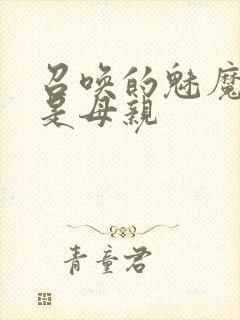 召唤的魅魔
是母親
青童君